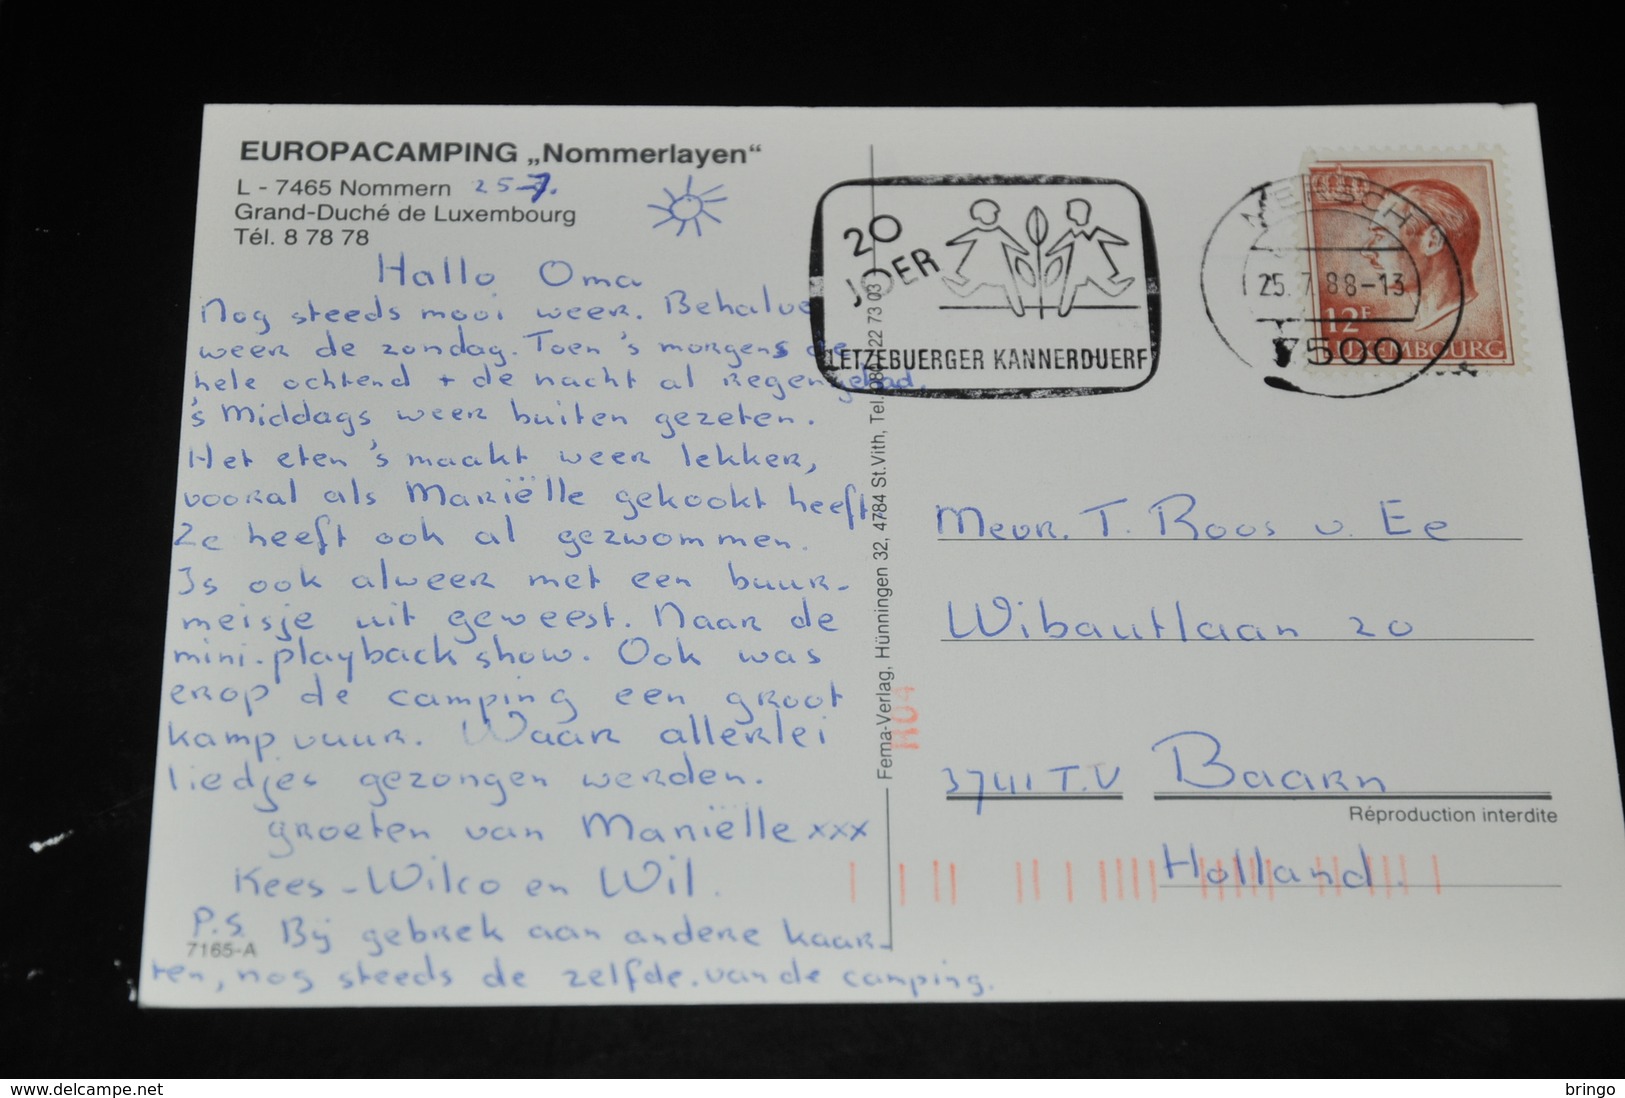 EUROPACAMPING „Nommerlayen“
L - 7465 Nommern 25-7.
Grand-Duché de Luxembourg
Tél. 8 78 78
Hallo Oma
Nog steeds mooi weer. Behalve
weer de zondag. Toen 's morgens de
hele ochtend + de nacht al regen gehad,
's middags weer buiten gezeten.
Het eten 's maakt weer lekker,
vooral als Mariëlle gekookt heeft.
Ze heeft ook al gezwommen.
Is ook alweer met een buur-
meisje uit geweest. Naar de
mini-playback show. Ook was
er op de camping een groot
kampvuur. Waar allerlei
liedjes gezongen werden.
groeten van Mariëlle xxx
Kees - Wilco en Wil.
P.S. Bij gebrek aan andere kaar-
7165-A
ten, nog steeds de zelfde. van de camping.
Fema-Verlag, Hünningen 32, 4784 St.Vith, Tel. 080 / 22 73 03
20
JOER
LETZEBUERGER KANNERDUERF
MERSCH
25. 7. 88-13
7500
12F
LUXEMBOURG
Mevr. T. Roos v. Ee
Wibautlaan 20
3741 T.V Baarn
Réproduction interdite
Holland.
R04
www.delcampe.net
bringo